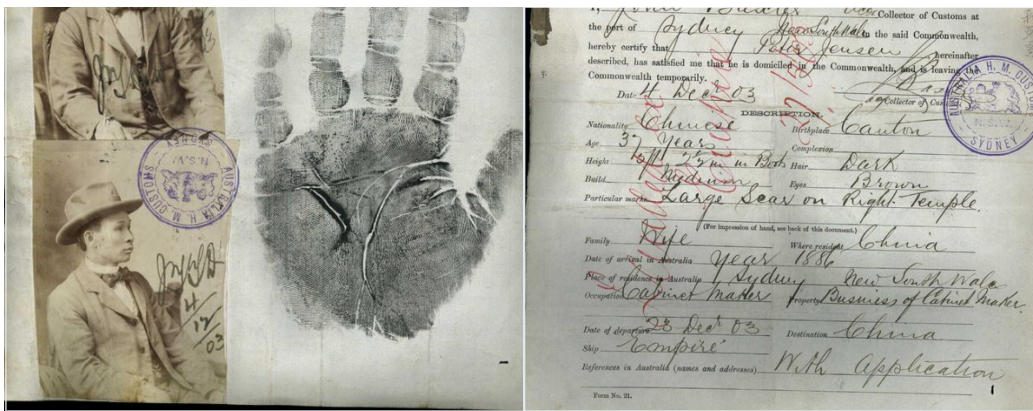 4/12/03
AUSTRALIA H. M. CUSTOMS
N.S.W.
SYDNEY
Collector of Customs at
the port of Sydney New South Wales in the said Commonwealth,
hereby certify that Peter Jensen hereinafter
described, has satisfied me that he is domiciled in the Commonwealth, and is leaving the
Commonwealth temporarily.
Date 4 Decr 03
Collector of Customs
AUSTRALIA H. M. CUSTOMS
N.S.W.
SYDNEY
DESCRIPTION.
Nationality Chinese Birthplace Canton
Age 37 years Complexion
Height in Boots Hair Dark
Build Medium Eyes Brown
Particular marks Large Scar on Right Temple.
(For impression of hand, see back of this document.)
Family Wife Where resident China
Date of arrival in Australia year 1886
Place of residence in Australia Sydney New South Wales
Occupation Cabinet Maker Property Business of Cabinet Maker.
Date of departure 23 Decr 03 Destination China
Ship Empire
References in Australia (names and addresses) With Application
Form No. 21.